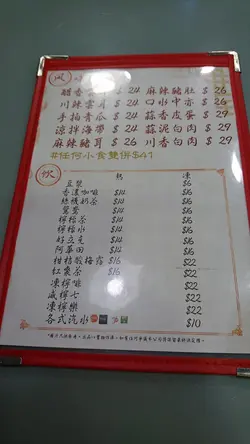 風
醋香雲耳 $ 24 麻辣豬肚 $ 26
川辣雲耳 $ 24 口水中亦 $ 26
手拍青瓜 $ 24 蒜香皮蛋 $ 29
涼拌海帶 $ 24 蒜泥白肉 $ 29
麻辣豬耳 $ 26 川香白肉 $ 29
#任何小食雙併$41
飲 熱 凍
豆漿 $6
香濃咖啡 $14 $6
絲襪奶茶 $14 $6
鴛鴦 $14 $6
檸檬茶 $14 $6
檸檬水 $14 $6
好立克 $14 $6
阿華田 $14 $6
柑桔酸梅露 $16 $22
紅棗茶 $16 $22
凍檸檬 $22
咸檸七 $22
凍檸樂 $22
各式汽水 $10